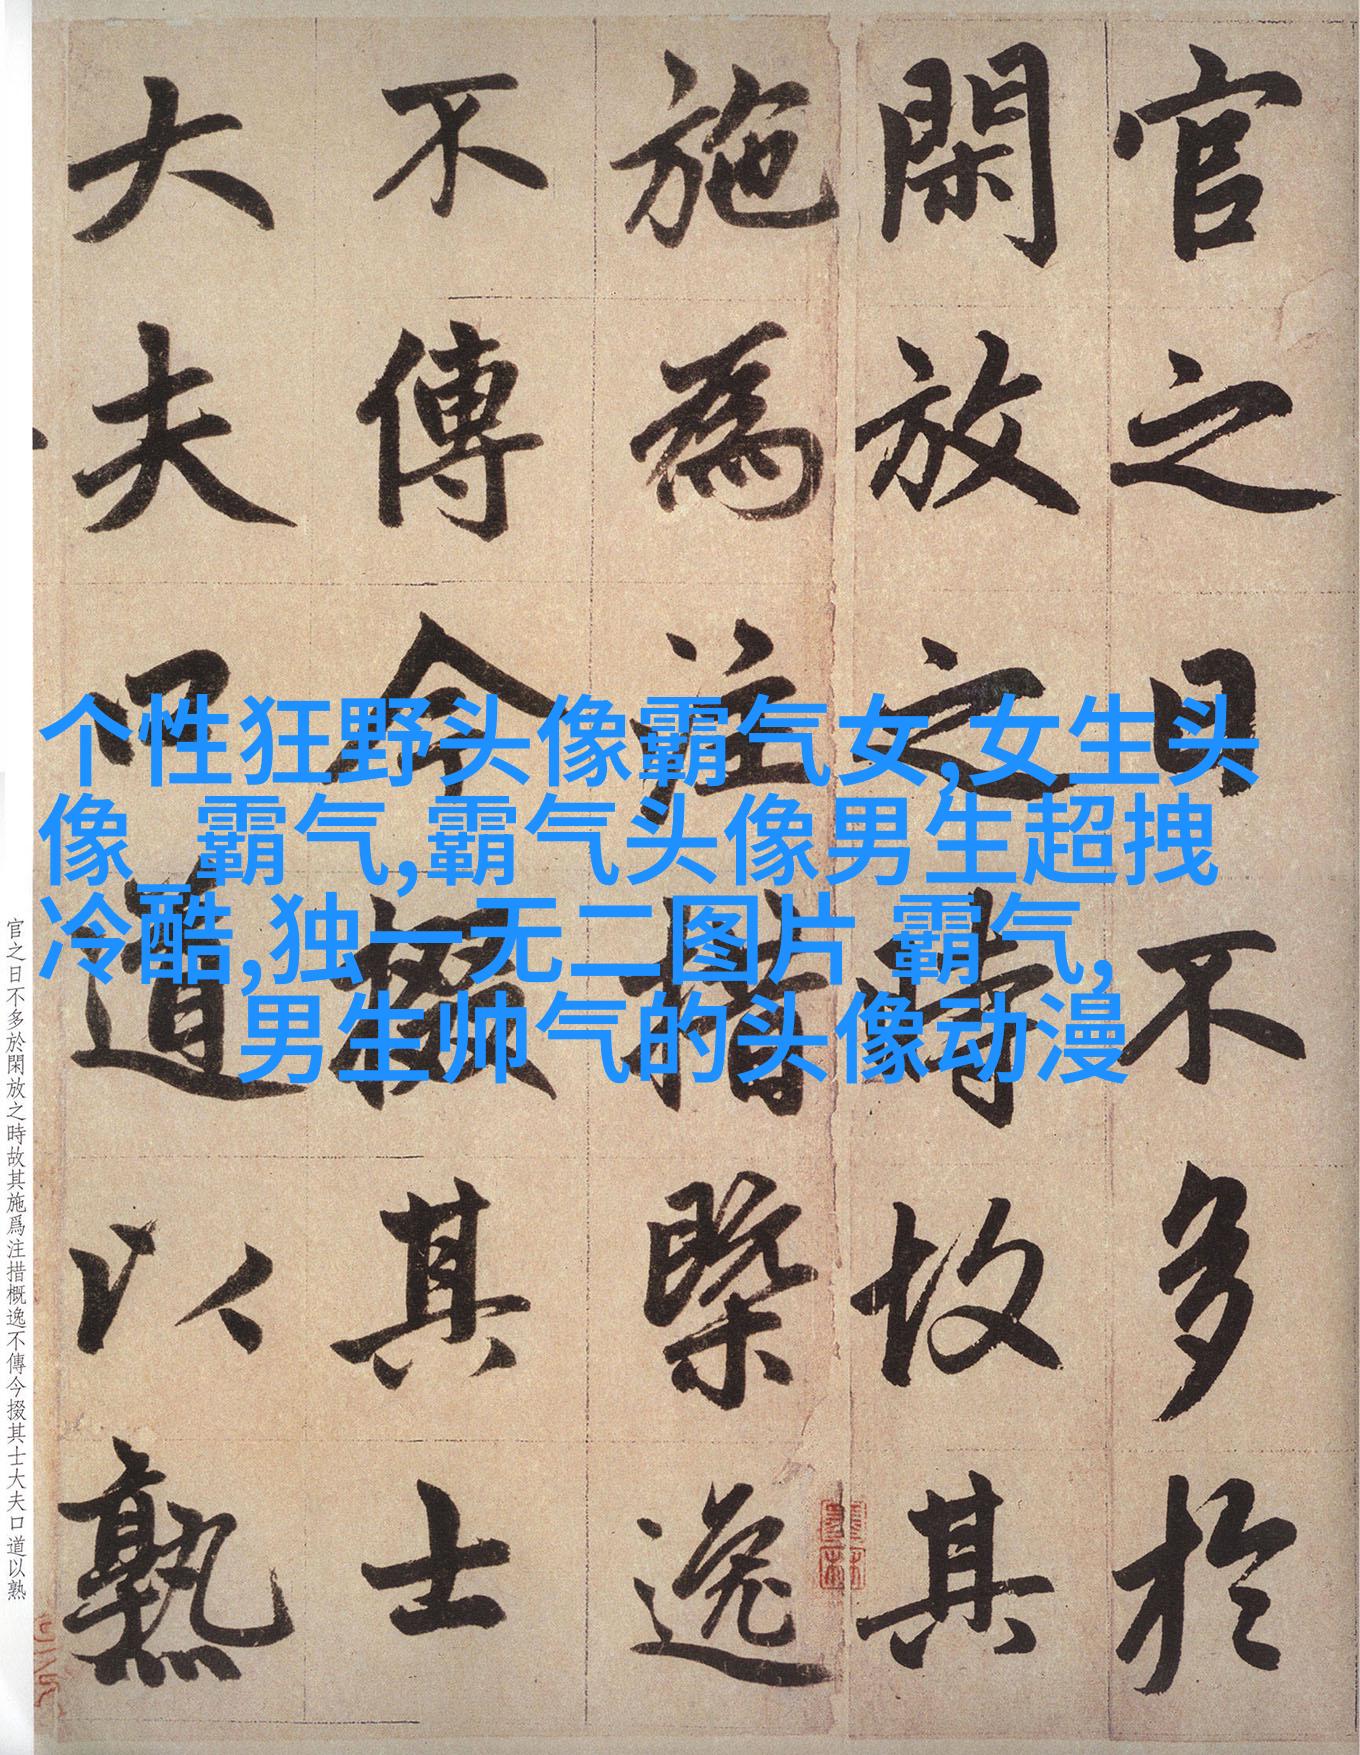 官之日不多於
閑放之時故其
施為注措槩逸
不傳今掇其士
大夫口道以熟
个性狂野头像霸气女,女生头
像_ 霸气,霸气头像男生超拽
冷酷,独一无二图片 霸气,
男生帅气的头像动漫
官之日不多於閑放之時故其施爲注措概逸不傳今掇其士大夫口道以熟